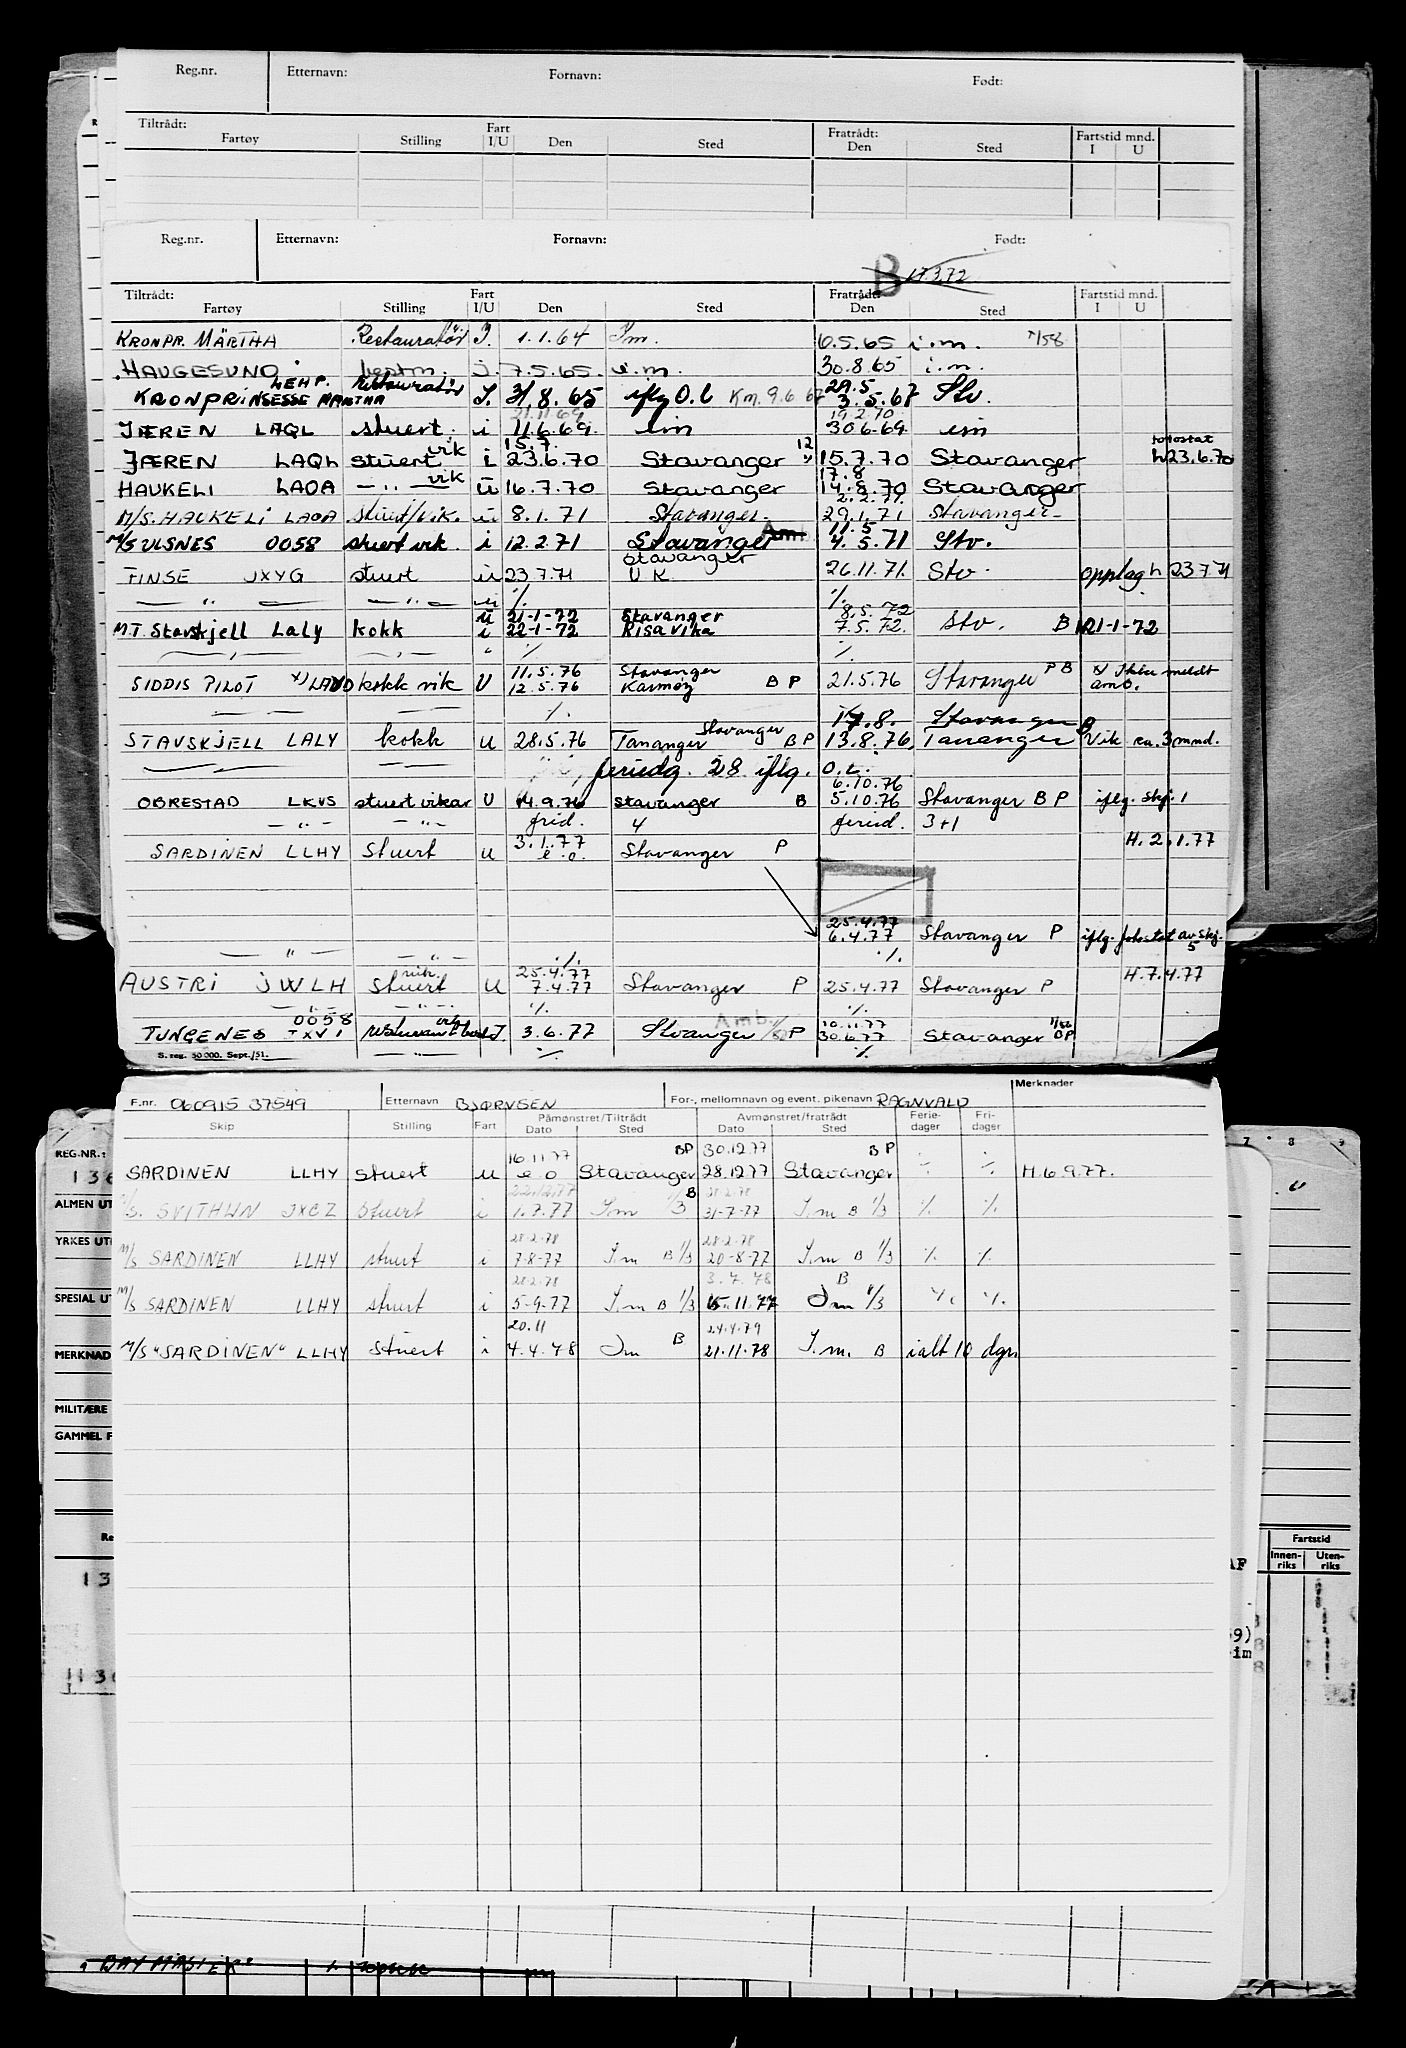 Reg.nr. Etternavn: Fornavn: Født:
Tiltrådt: Fratrådt: Fartstid mnd.
Fartøy Stilling Fart I/U Den Sted Den Sted I U
Reg.nr. Etternavn: Fornavn: Født:
B 17.3.72
Tiltrådt: Fratrådt: Fartstid mnd.
Fartøy Stilling Fart I/U Den Sted Den Sted I U
KRONPR. MÄRTHA Restauratør I. 1.1.64 I.m. 6.5.65 i.m. 1/58
HAUGESUND bestm. i. 7.5.65. i.m. 30.8.65 i.m.
LEHP. restauratør 29.5
KRONPRINSESSE MARTHA I. 31.8.65 iflg O.l Km. 9.6 67 3.5.67 Stv.
21.11.69 19.2.70
JÆREN LAQL stuert. i 11.6.69. im 30.6.69. im
15.7. 12 fotostat
JÆREN LAQL stuert vik i 23.6.70 Stavanger 15.7.70 Stavanger h 23.6.70
17.8
HAUKELI LAOA —..— vik u 16.7.70 Stavanger 14.8.70 Stavanger
2.2.71.
M/S. HAUKELI LAOA stuert/vik. u 8.1.71 Stavanger. 29.1.71 Stavanger.
Amb. 11.5
M/S ULSNES 0058 stuert vik. i 12.2.71 Stavanger 4.5.71 Stv.
Stavanger
FINSE JXYG stuert u 23.7.71 U K. 26.11.71. Stv. opplag h 23.7.71
— " — — " — u % %
u 21-1-72 Stavanger 8.5.72
M.T. Stavskjell LALY kokk i 22-1-72 Risavika 7.5.72. Stv. B 21-1-72
— " — " % %
11.5.76 Stavanger P B x) Ikke meldt
SIDDIS PILOT x) kokk vik U 12.5.76 Karmøy B P 21.5.76 Stavanger amb.
— — — — %.
17.8. Stavanger
STAVSKJELL LALY kokk u 28.5.76 Tananger Stavanger B P 13.8.76. Tananger B Vik ca. 3 mnd.
— — — — feriedg. 28 iflg. O.l.
6.10.76
OBRESTAD LKVS stuert vikar U 14.9.76 Stavanger B 5.10.76 Stavanger B P iflg. skj. 1
— " — — " — frid. 4 feried. 3+1
3.1.77 H. 2.1.77
SARDINEN LLHY stuert u e.o. Stavanger P
25.4.77
6.4.77 Stavanger P iflg. fotostat av skj. 5
— " — — " — % %
vik. 25.4.77 H. 7.4.77
AUSTRI JWLH stuert U 7.4.77 Stavanger P 25.4.77 Stavanger P
— " — — " — % %
0058 vik Amb. 10.11.77 1/86
TUNGENES JXVI I. 3.6.77 Stvanger P 30.6.77 Stavanger B P
S. reg. 50 000. Sept./51. — " — % %
F.nr. 060915 37549 Etternavn BJØRNSEN For-, mellomnavn og event. pikenavn RAGNVALD Merknader
Skip Stilling Fart Påmønstret/Tiltrådt Dato Sted Avmønstret/fratrådt Dato Sted Ferie-dager Fri-dager
16.11.77 BP 30.12.77 BP
SARDINEN LLHY stuert u e o Stavanger 28.12.77 Stavanger % % H. 6.9.77.
B 28.2.78
M/S. SVITHUN JXCZ stuert i 1.7.77 I m 1/3 31-7-77 I.m B 1/3 % %
28.2.78 28.2.78
M/S SARDINEN LLHY stuert i 7-8-77 I.m B 1/3 20-8-77 I.m B 1/3 % %
28.2.78 3.7.78 B
M/S SARDINEN LLHY stuert i 5-9-77 I.m B 1/3 15.11.77 I m 1/3 % %
20.11 24.4.79
M/S "SARDINEN" LLHY stuert i 4.4.78 I m B 21.11.78 I.m. B ialt 10 dgr.
REG.NR.:
136
ALMEN UT
YRKES UT
SPESIAL UT
MERKNAD
MILITÆRE
GAMMEL F
Re
13
1136
7 8 9
Fartstid
Innen-riks Uten-riks
AF
59)
eim
"BAY MASTER"